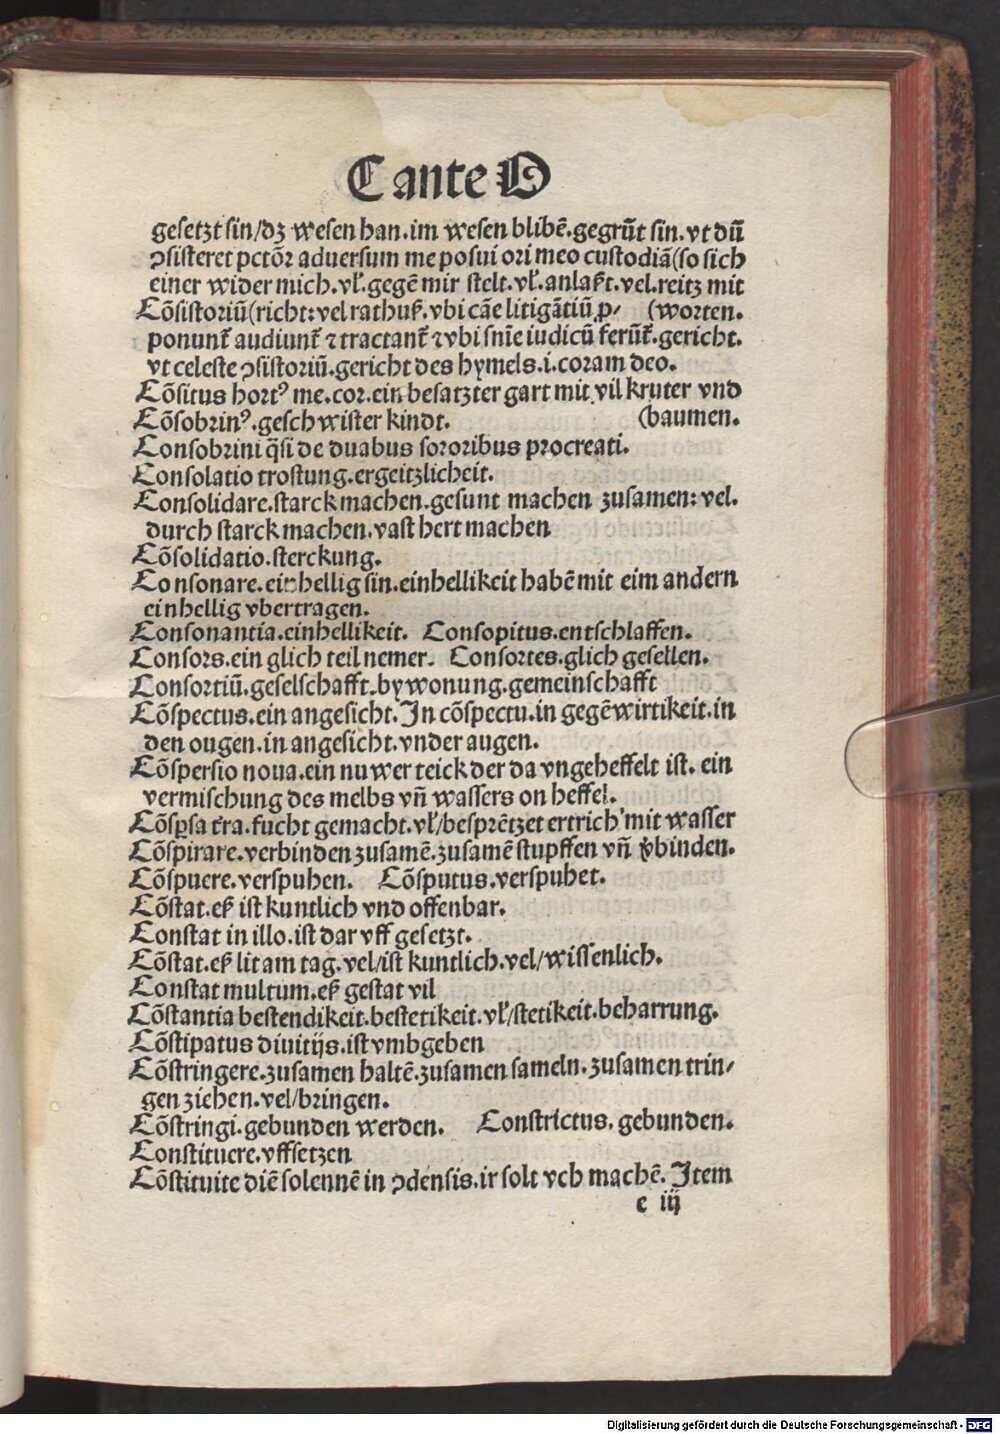 C ante O
gesetzt sin/dz wesen han.im wesen blibē.gegrūt sin.vt dū
ꝯsisteret pctōꝛ aduersum me posui oꝛi meo custodiā(so sich
einer wider mich.vl̓.gegē mir stelt.vl̓.anlaßt.vel.reitz mit
Cōsistoriū(richt:vel rathuß.vbi cāe litigātiū p- (woꝛten.
ponunt̄ audiunt̄ ⁊ tractant̄ ⁊vbi snīe iudicū ferūt̄.gericht.
vt celeste ꝯsistoriū.gericht des hymels.i.coram deo.
Cōsitus hort⁹ me.cor.ein besatzter gart mit vil kruter vnd
Cōsobrin⁹.geschwister kindt. (baumen.
Consobrini q̄si de duabus soꝛoꝛibus pꝛocreati.
Consolatio trostung.ergeitzlicheit.
Consolidare.starck machen.gesunt machen zusamen:vel.
durch starck machen.vast hert machen
Cōsolidatio.sterckung.
Consonare.einhellig sin.einhellikeit habē mit eim andern
einhellig vbertragen.
Consonantia.einhellikeit. Consopitus.entschlaffen.
Consors.ein glich teil nemer. Consortes.glich gesellen.
Consortiū.geselschafft.bywonung.gemeinschafft
Cōspectus.ein angesicht.In cōspectu.in gegēwirtikeit.in
den ougen.in angesicht.vnder augen.
Cōspersio noua.ein nuwer teick der da vngeheffelt ist.ein
vermischung des melbs vn̄ wassers on heffel.
Cōsp̱sa tr̄a.fucht gemacht.vl̓/besprētzet ertrich mit wasser
Cōspirare.verbinden zusamē.zusamē stupffen vn̄ v̓binden.
Cōspuere.verspuhen. Cōsputus.verspuhet.
Cōstat.eß ist kuntlich vnd offenbar.
Constat in illo.ist dar vff gesetzt.
Cōstat.eß lit am tag.vel/ist kuntlich.vel/wissenlich.
Constat multum.eß gestat vil
Cōstantia bestendikeit.bestetikeit.vl̓/stetikeit.beharrung.
Cōstipatus diuitijs.ist vmbgeben
Cōstringere.zusamen haltē.zusamen sameln.zusamen trin/
gen ziehen.vel/bꝛingen.
Cōstringi.gebunden werden. Constrictus.gebunden.
Constituere.vffsetzen
Cōstituite diē solennē in ꝯdensis.ir solt vch machē.Item
e iij
Digitalisierung gefördert durch die Deutsche Forschungsgemeinschaft - DFG